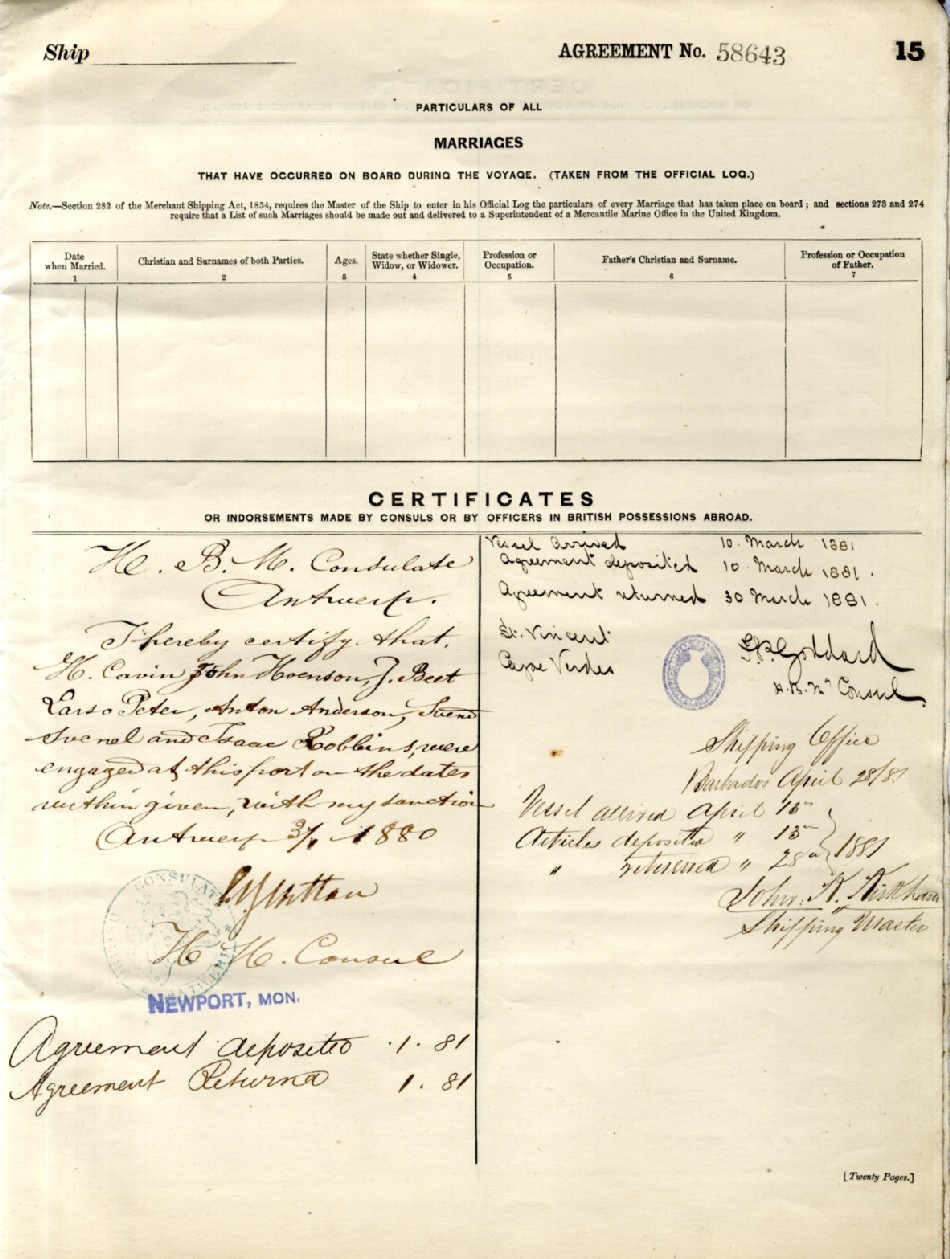 Ship
AGREEMENT No. 58643
15
PARTICULARS OF ALL
MARRIAGES
THAT HAVE OCCURRED ON BOARD DURING THE VOYAGE. (TAKEN FROM THE OFFICIAL LOG.)
Note.—Section 282 of the Merchant Shipping Act, 1854, requires the Master of the Ship to enter in his Official Log the particulars of every Marriage that has taken place on board; and sections 273 and 274
require that a List of such Marriages should be made out and delivered to a Superintendent of a Mercantile Marine Office in the United Kingdom.
Date when Married. 1
Christian and Surnames of both Parties. 2
Ages. 3
State whether Single, Widow, or Widower. 4
Profession or Occupation. 5
Father's Christian and Surname. 6
Profession or Occupation of Father. 7
CERTIFICATES
OR INDORSEMENTS MADE BY CONSULS OR BY OFFICERS IN BRITISH POSSESSIONS ABROAD.
H. B. M. Consulate
Antwerp.
I hereby certify that
H. Cavin John Hoenson, J. Best
Lars o Peter, Anton Anderson,
and Isaac Robbins, were
engaged at this port on the dates
within given, with my sanction
Antwerp 1880
H. M. Consul
CONSULATE
NEWPORT, MON.
Agreement deposited 1. 81
Agreement Returnd 1. 81
Vessel arrived 10 March 1881
Agreement deposited 10 March 1881.
Agreement returned 30 March 1881.
St. Vincent
Cape Verdes
Goddard
H. B. M. Consul
Shipping Office
Barbados April 28/81
Vessel arrived April
Articles deposited " 13th
" returned " 1881
John. K. Kirkham
Shipping Master
[Twenty Pages.]